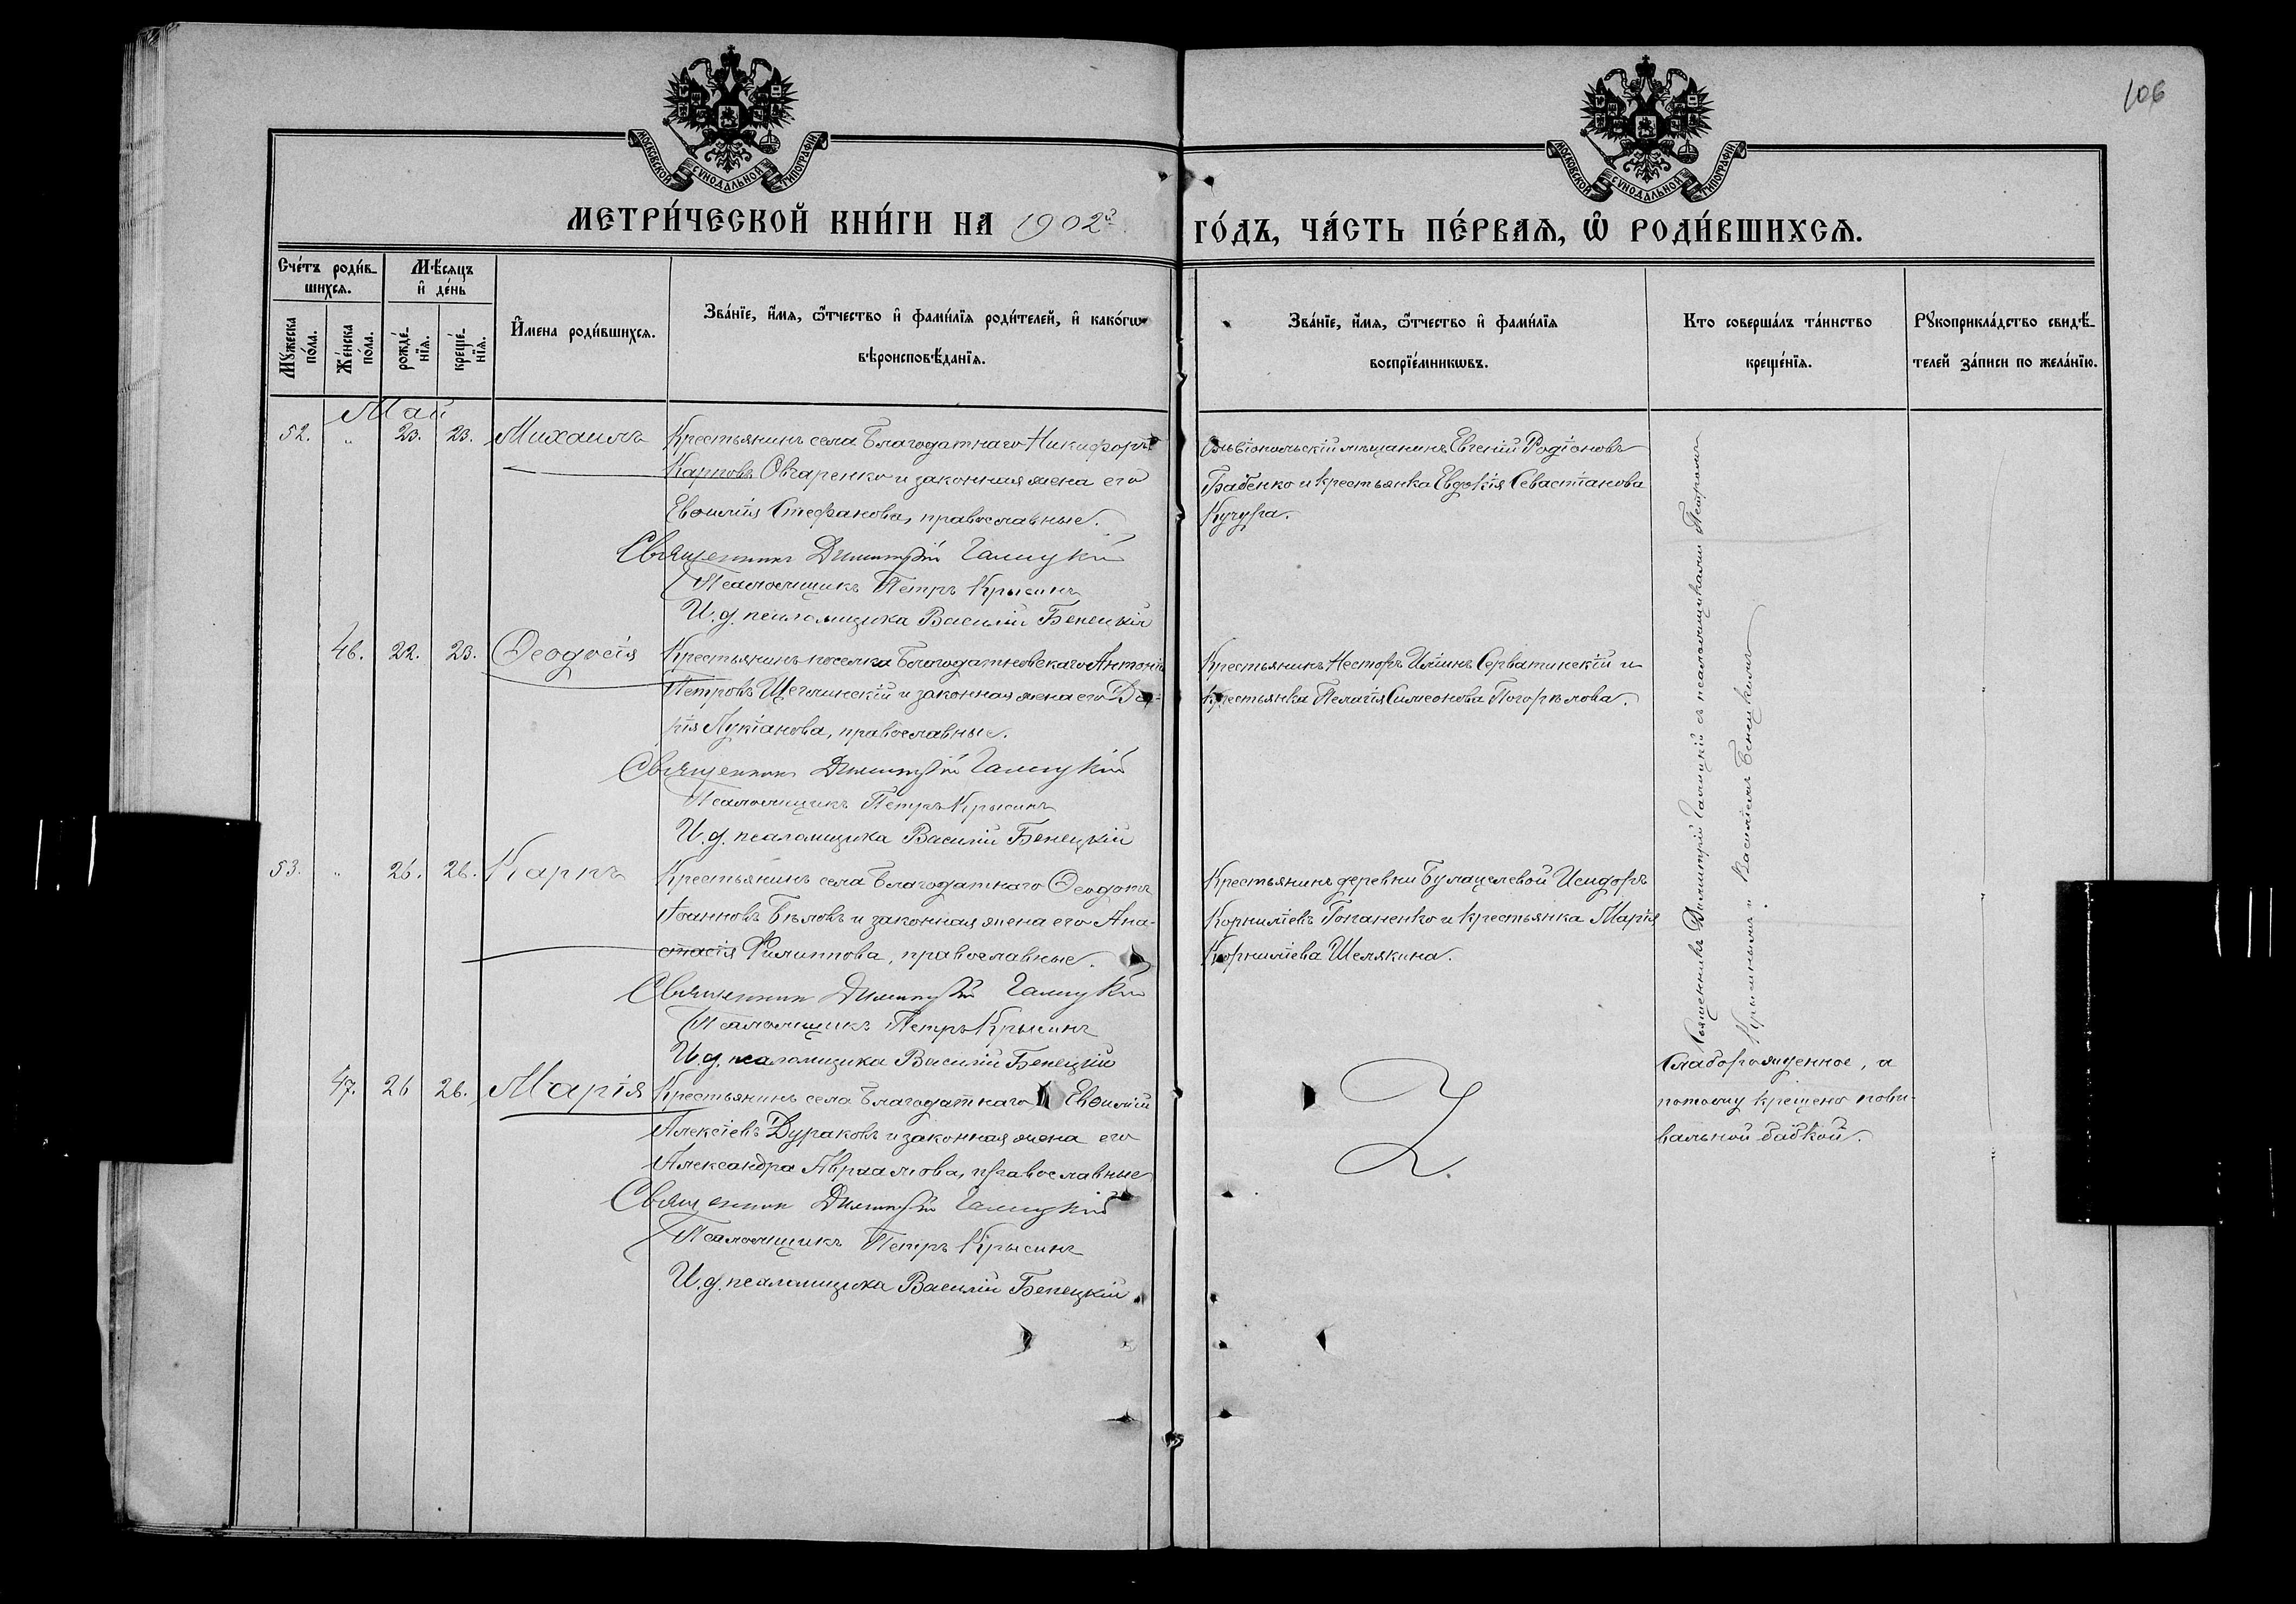 106
МОСКОВСКОЙ СУНОДАЛЬНОЙ ТИПОГРАФІИ
МОСКОВСКОЙ СУНОДАЛЬНОЙ ТИПОГРАФІИ
МЕТРИ́ЧЕСКОЙ КНИ́ГИ НА 1902й
ГО́ДЪ, ЧА́СТЬ ПЕ́РВАѦ, Ѡ҆ РОДИ́ВШИХСѦ.
Сче́тъ роди́в-
шихсѧ.
Мѣ́сѧцъ
и҆ де́нь
Мꙋ́жеска
по́ла.
Же́нска
по́ла.
рожде́-
нїѧ.
креще́-
нїѧ.
И҆мена роди́вшихсѧ.
Зва́нїе, и҆́мѧ, ѻ҆́тчество и҆ фами́лїѧ роди́телей, и҆ како́гѡ
вѣроисповѣ́данїѧ.
Зва́нїе, и҆́мѧ, ѻ҆́тчество и҆ фами́лїѧ
воспрїе́мникѡвъ.
Кто соверша́лъ та́инство
креще́нїѧ.
Рꙋкоприкла́дство свидѣ́-
телей за́писи по жела́нїю.
Май
52. " 23. 23. Михаилъ
Крестьянинъ села Благодатнаго Никифоръ
Карповъ Овчаренко и законная жена его
Евѳимія Стефанова, православные.
Священникъ Димитрій Галицкій
Псаломщикъ Петръ Крысинъ
И.д. псаломщика Василій Бенецкій
Ольвіопольскій мѣщанинъ Евгеній Родіоновъ
Бабенко и крестьянка Евдокія Севастіанова
Кучура.
46. 22. 23. Ѳеодосія
Крестьянинъ поселка Благодатновскаго Антоній
Петровъ Щеглинскій и законная жена его Да-
рія Лукіанова, православные.
Священникъ Димитрій Галицкій
Псаломщикъ Петръ Крысинъ
И.д. псаломщика Василій Бенецкій
Крестьянинъ Несторъ Иліинъ Серватинскій и
крестьянка Пелагія Симеонова Погорѣлова.
53. " 26. 26. Карпъ
Крестьянинъ села Благодатнаго Ѳеодотъ
Іоанновъ Бѣловъ и законная жена его Ана-
стасія Филиппова, православные.
Священникъ Димитрій Галицкій
Псаломщикъ Петръ Крысинъ
И.д. псаломщика Василій Бенецкій
Крестьянинъ деревни Булацелевой Исидоръ
Корниліевъ Гопаненко и крестьянка Марія
Корниліева Шелякина.
Священникъ Димитрій Галицкій съ псаломщиками Петромъ
Крысинымъ и Василіемъ Бенецкимъ
47. 26 26. Марія
Крестьянинъ села Благодатнаго Евѳимій
Алексіевъ Дураковъ и законная жена его
Александра Авраамова, православные
Священникъ Димитрій Галицкій
Псаломщикъ Петръ Крысинъ
И.д. псаломщика Василій Бенецкій
Слаборожденное, а
потому крещено пови-
вальной бабкой.